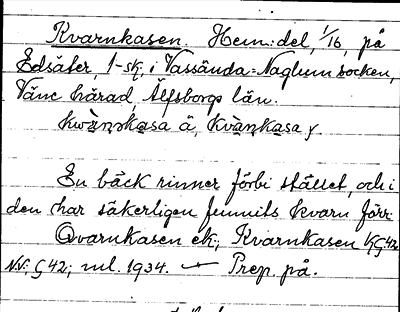 Kvarnkasen. Hem:del, 1/16, på
Edsäter, 1-sk, i Vassända=Naglum socken,
Väne härad, Älfsborgs län.
En bäck rinner förbi stället, och i
den har säkerligen funnits kvarn förr.
Qvarnkasen ek; Kvarnkasen
G 42; ml. 1934. — Prep. på.